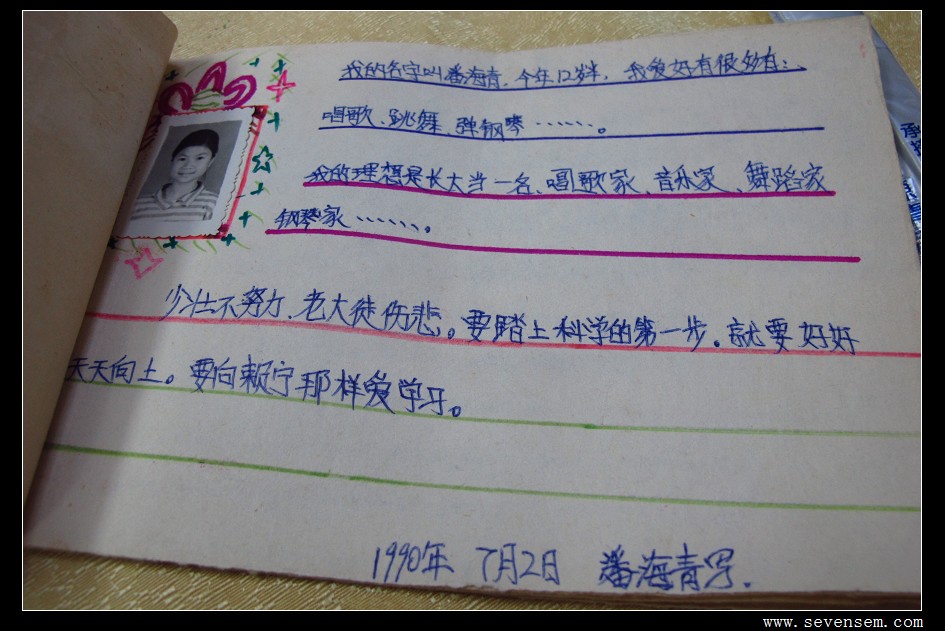 我的名字叫潘海青,今年12岁半,我爱好有很多有:、
唱歌、跳舞、弹钢琴……。
我的理想是长大当一名、唱歌家、音乐家、舞蹈家
钢琴家……。
少壮不努力、老大徒伤悲。要踏上科学的第一步。就要好好
天天向上。要向赖宁那样爱学习。
1990年 7月2日 潘海青写.
www.sevensem.com